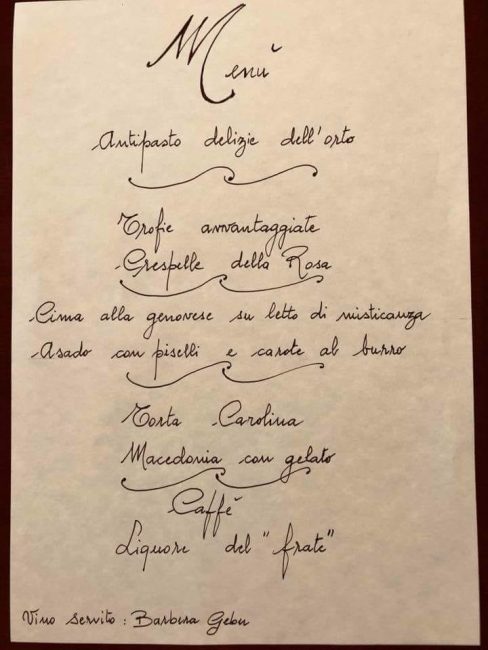 Menù
Antipasto delizie dell'orto
Trofie avvantaggiate
Crespelle della Rosa
Cima alla genovese su letto di misticanza
Asado con piselli e carote al burro
Torta Carolina
Macedonia con gelato
Caffè
Liquore del "frate"
Vino servito: Barbera